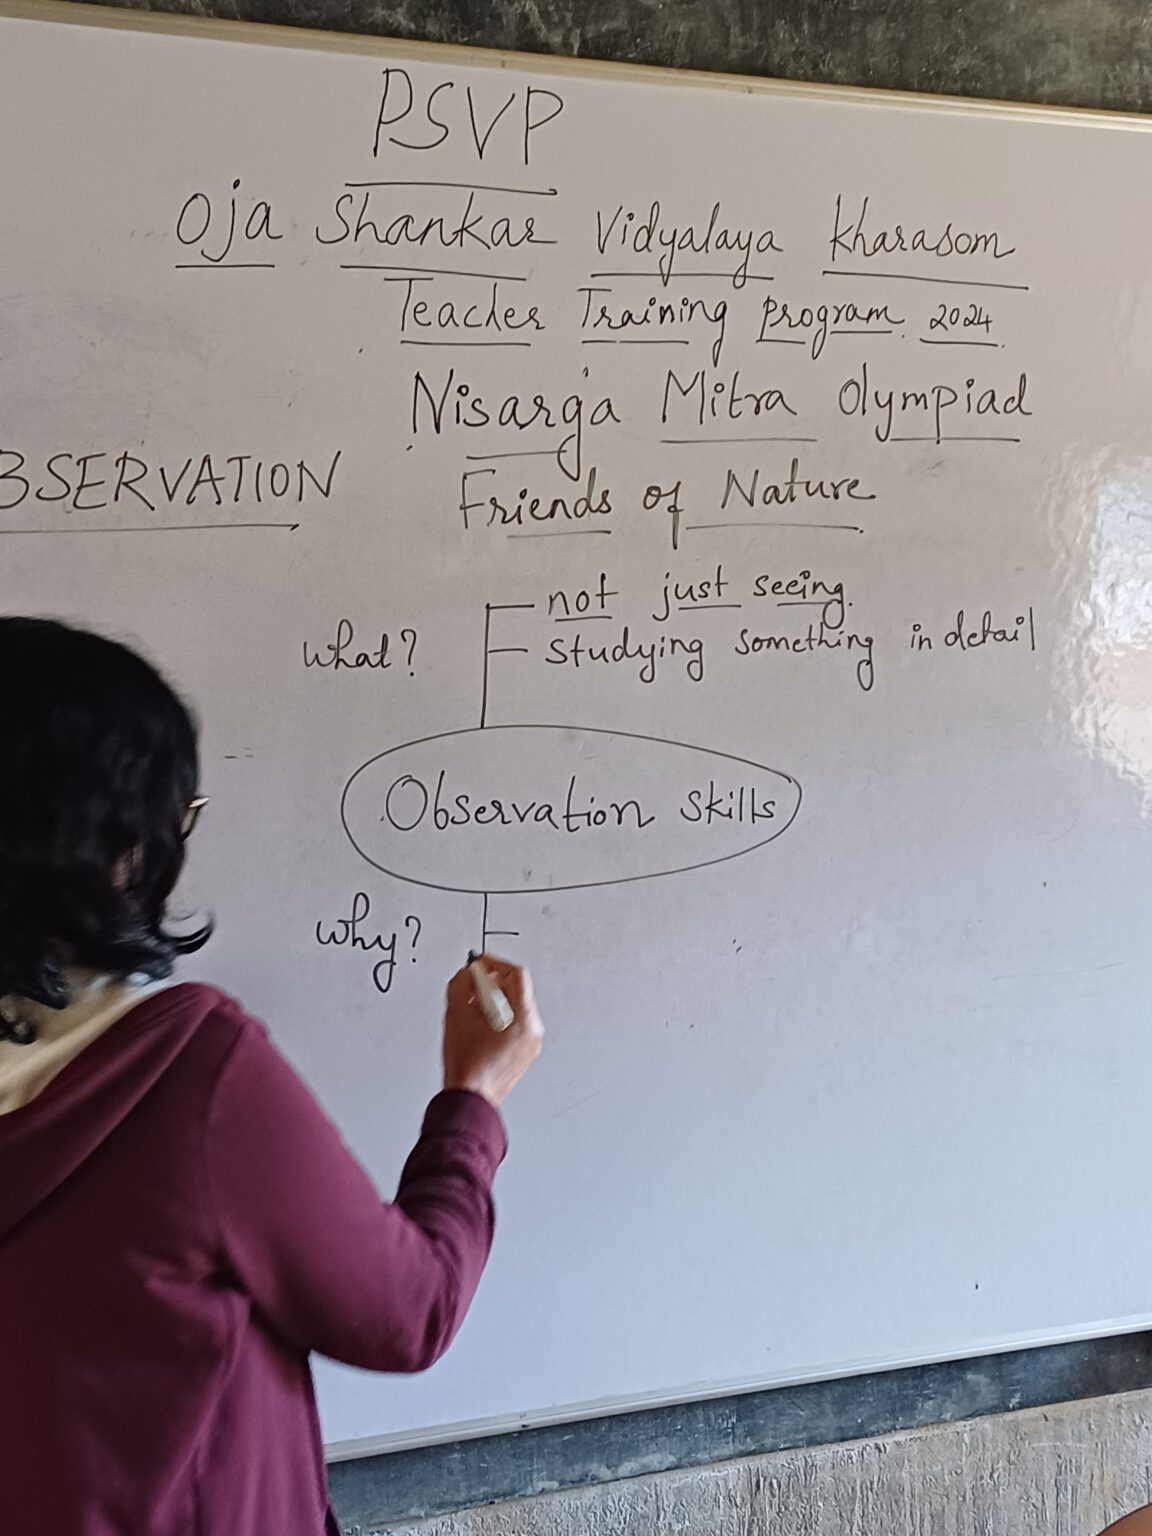 PSVP
Oja Shankar Vidyalaya Kharasom
Teacher Training Program 2024
Nisarga Mitra Olympiad
BSERVATION
Friends of Nature
not just seeing.
what?
studying something in detail
Observation skills
why?